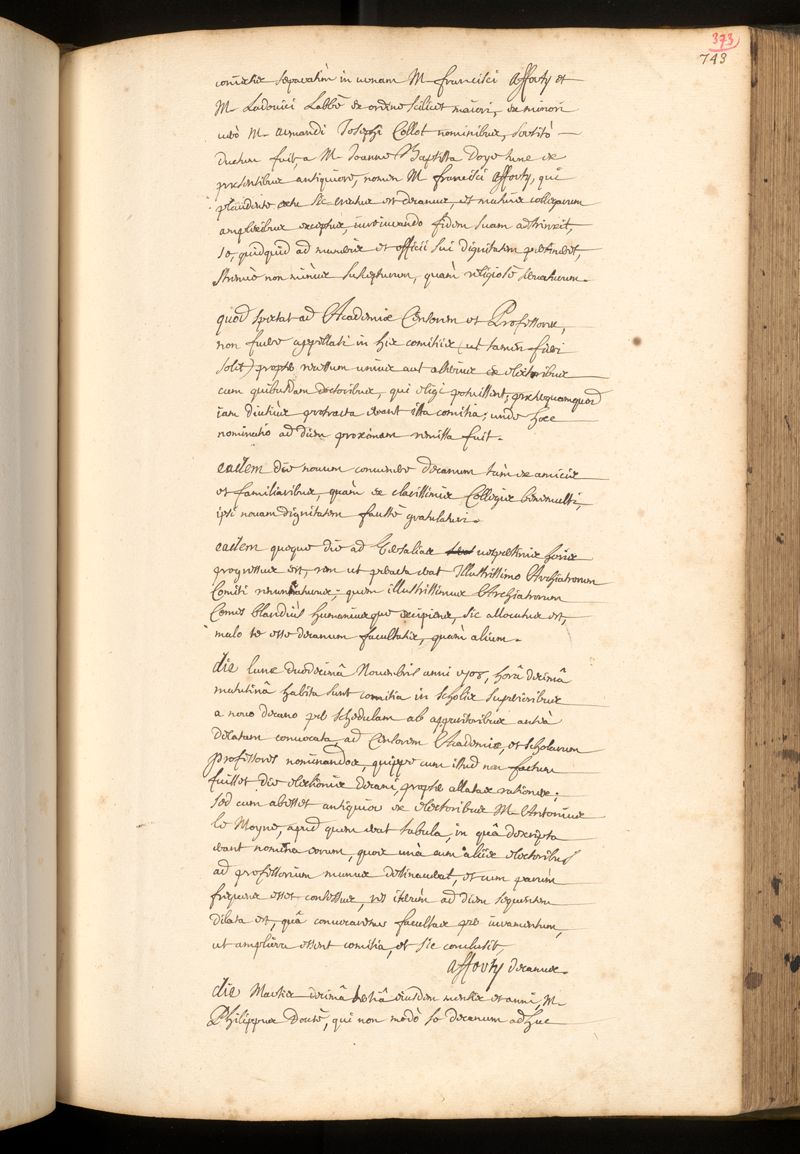 373
743
coniectis separatim in urnam M. francisci afforty et
M. Ludovici Labbé ex ordine scilicet maiori, ex minori
verò M. Armandi Josephi Collot nominibus, sortitò
ductum fuit, a M. Joanne Baptista Doye tunc ex
præsentibus antiquiore, nomen M. francisci afforty, qui
plaudente cœtu sic creatus est decanus, et mutuis collegarum
amplexibus exceptus, iureiurando fidem suam adstrinxit,
se, quidquid ad muneris et officii sui dignitatem pertineret,
strenuè non minùs suscepturum, quàm religiosè servaturum.
quod spectat ad Academiæ Censorem et Professores,
non fuere appellati in his comitiis (ut tamen fieri
solet) propter recessum unius aut alterius ex electoribus
cum quibusdam doctoribus, qui eligi potuissent; præterquamquod
iam diutiùs protracta erant ista comitia; unde hæc
nominatio ad diem proximam remissa fuit.
eadem die novum convenere decanum tùm ex amicis
et familiaribus, quàm ex clarissimis Collegis benemulti,
ipsi novam dignitatem faustè gratulaturi.
eadem quoque die ad Versalias vespertinis horis
progressus est, rem ut peracta erat Illustrissimo Archiatrorum
Comiti renuntiaturus; quem illustrissimus Archiatrorum
Comes blandiùs humaniusque excipiens, sic allocutus est,
malo te esse decanum facultatis, quàm alium.
die lunæ duodecimâ Novembris anni 1708, horâ decimâ
matutinâ habita sunt comitia in scholis superioribus
a novo decano per schedulam ab apparitoribus anteà
delatam convocata, ad Censorem Academiæ, et scholarum
professores nominandos, quippe cum istud non factum
fuisset die electionis decani, propter allatas rationes;
sed cum abesset antiquior ex electoribus M. Antonius
le Moyne, apud quem erat tabula, in quâ descripta
erant nomina eorum, quos unà cum aliis electoribus
ad professorium munus destinaverat, et cum parùm
frequens esset consessus, res iterùm ad diem sequentem
dilata est, quâ convocaretur facultas per iuramentum,
ut ampliora essent comitia, et sic conclusit,
afforty decanus.
die Martis decimâ tertiâ eiusdem mensis et anni, M.
Philippus Douté, qui non modò se decanum adhuc